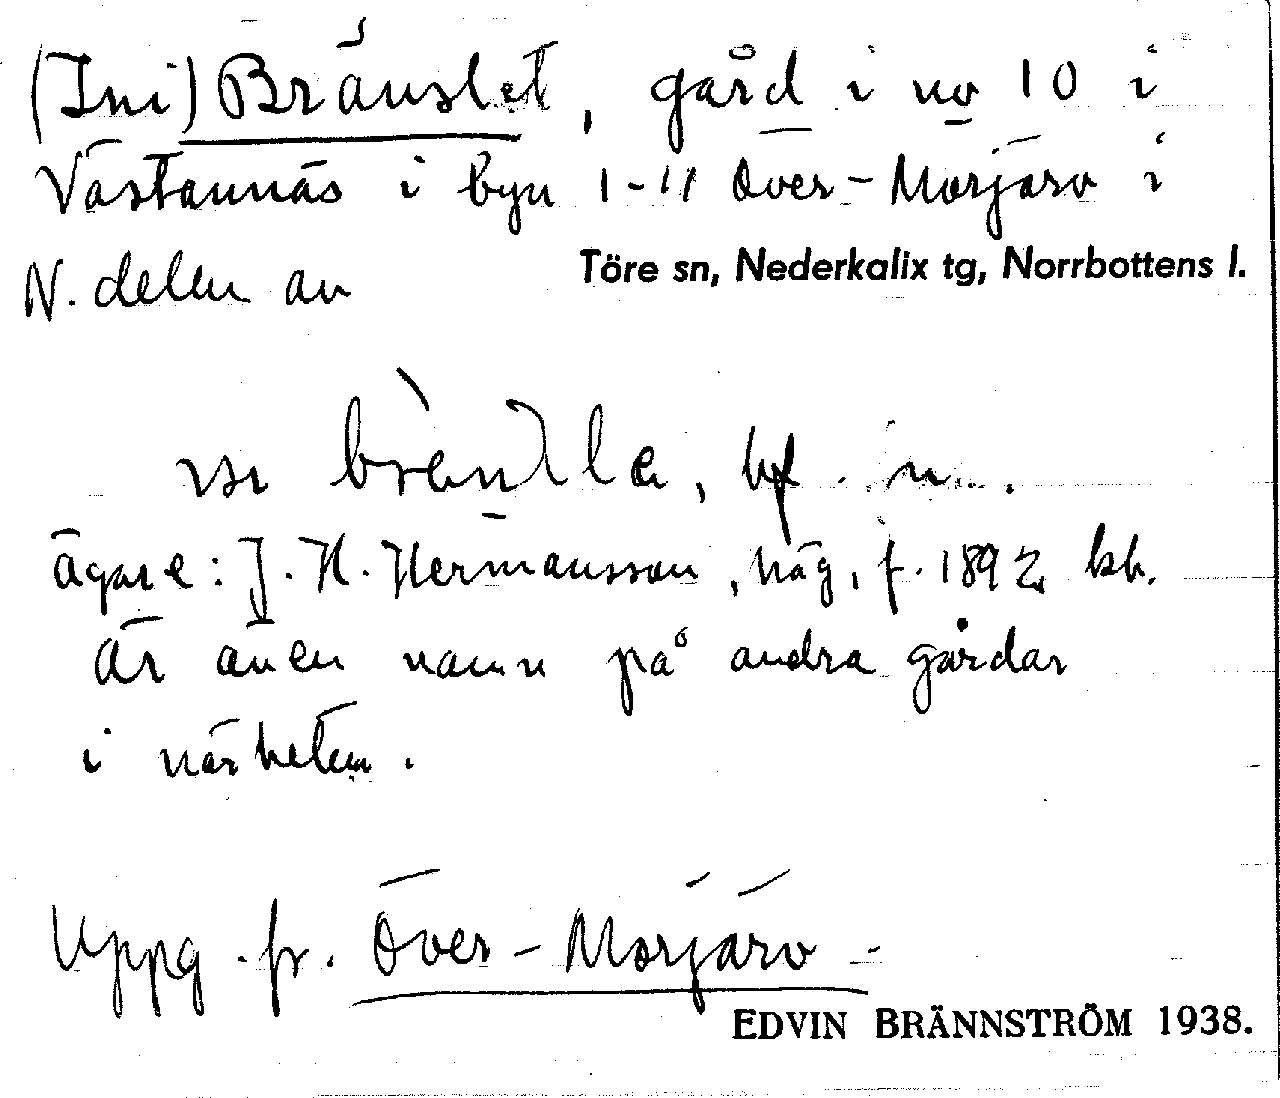 (Ini) Bränslet, gård i no 10 i
Västannäs i byn 1-11 Över-Morjärv i
N. delen av
Töre sn, Nederkalix tg, Norrbottens l.
bf. n.
ägare: J. H. Hermansson, häg, f. 1892 bh.
Är även namn på andra gårdar
i närheten.
Uppg. fr. Över-Morjärv -
EDVIN BRÄNNSTRÖM 1938.